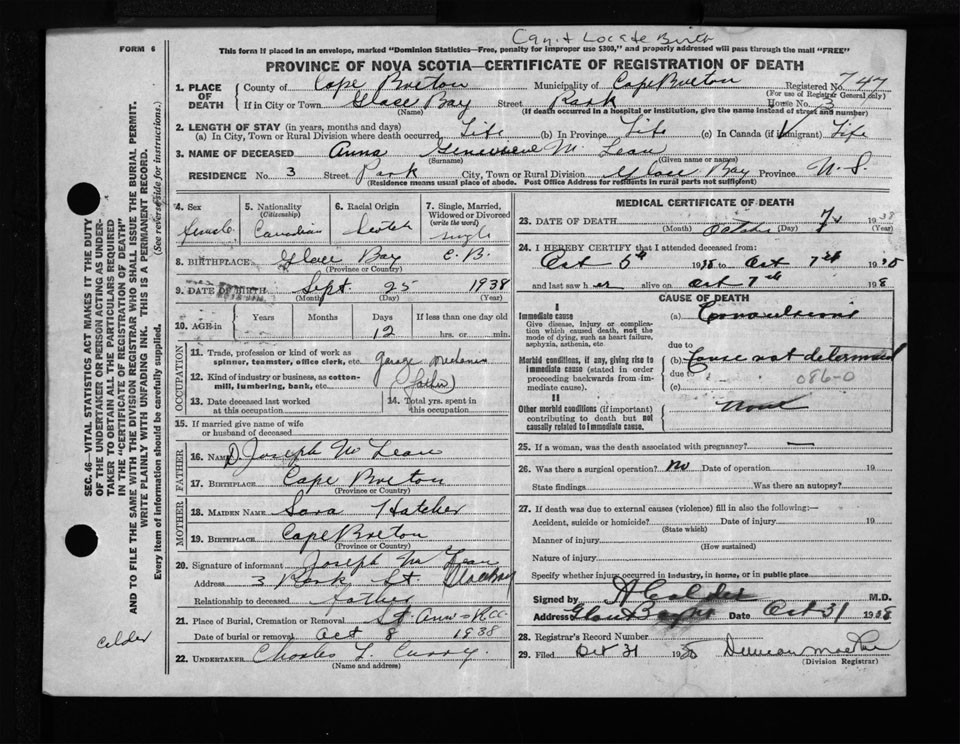 Can't Locate Birth
FORM 6
This form if placed in an envelope, marked "Dominion Statistics—Free, penalty for improper use $300," and properly addressed will pass through the mail "FREE"
PROVINCE OF NOVA SCOTIA—CERTIFICATE OF REGISTRATION OF DEATH
1. PLACE OF DEATH County of Cape Breton Municipality of Cape Breton Registered No. 747
(For use of Registrar General only)
If in City or Town Glace Bay Street Park House No. 3
(Name) (If death occurred in a hospital or institution, give the name instead of street and number)
2. LENGTH OF STAY (in years, months and days)
(a) In City, Town or Rural Division where death occurred Life (b) In Province Life (c) In Canada (if immigrant) Life
3. NAME OF DECEASED Anna Genevieve Mc Lean
(Surname) (Given name or names)
RESIDENCE No. 3 Street Park City, Town or Rural Division Glace Bay Province N.S.
(Residence means usual place of abode. Post Office Address for residents in rural parts not sufficient)
4. Sex Female
5. Nationality (Citizenship) Canadian
6. Racial Origin Scotch
7. Single, Married, Widowed or Divorced (write the word) Single
8. BIRTHPLACE Glace Bay C.B.
(Province or Country)
9. DATE OF BIRTH Sept 25 1938
(Month) (Day) (Year)
10. AGE in Years Months Days If less than one day old
12 hrs. or min.
OCCUPATION
11. Trade, profession or kind of work as spinner, teamster, office clerk, etc. garage mechanic
12. Kind of industry or business, as cotton-mill, lumbering, bank, etc. (father)
13. Date deceased last worked at this occupation
14. Total yrs. spent in this occupation
15. If married give name of wife or husband of deceased
FATHER
16. NAME D. Joseph Mc Lean
17. BIRTHPLACE Cape Breton
(Province or Country)
MOTHER
18. MAIDEN NAME Sara Hatcher
19. BIRTHPLACE Cape Breton
(Province or Country)
20. Signature of informant Joseph Mc Lean
Address 3 Park St. Glace Bay
Relationship to deceased Father
21. Place of Burial, Cremation or Removal St Ann's
Date of burial or removal Oct 8 1938
22. UNDERTAKER Charles L. Curry.
(Name and address)
MEDICAL CERTIFICATE OF DEATH
23. DATE OF DEATH October 7 1938
(Month) (Day) (Year)
24. I HEREBY CERTIFY that I attended deceased from
Oct 5th 1938 to Oct 7th 1938
and last saw her alive on Oct 7th 1938
CAUSE OF DEATH
I
Immediate cause (a) Convulsions
Give disease, injury or complication which caused death, not the mode of dying, such as heart failure, asphyxia, asthenia, etc.
due to
Morbid conditions, if any, giving rise to immediate cause (stated in order proceeding backwards from immediate cause).
(b) Cause not determined
due to 086-0
(c)
II
Other morbid conditions (if important) contributing to death but not causally related to immediate cause.
None
25. If a woman, was the death associated with pregnancy? —
26. Was there a surgical operation? No Date of operation 19
State findings Was there an autopsy?
27. If death was due to external causes (violence) fill in also the following:—
Accident, suicide or homicide? Date of injury 19
(State which)
Manner of injury
(How sustained)
Nature of injury
Specify whether injury occurred in industry, in home, or in public place
Signed by A Calder M.D.
Address Glace Bay Date Oct 31 1938
28. Registrar's Record Number
29. Filed Oct 31 1938 Duncan
(Division Registrar)
SEC. 46—VITAL STATISTICS ACT MAKES IT THE DUTY
OF THE UNDERTAKER OR PERSON ACTING AS UNDER-
TAKER TO OBTAIN ALL THE PARTICULARS REQUIRED
IN THE "CERTIFICATE OF REGISTRATION OF DEATH"
AND TO FILE THE SAME WITH THE DIVISION REGISTRAR WHO SHALL ISSUE THE BURIAL PERMIT.
WRITE PLAINLY WITH UNFADING INK. THIS IS A PERMANENT RECORD.
Every item of information should be carefully supplied. (See reverse side for instructions.)
Calder